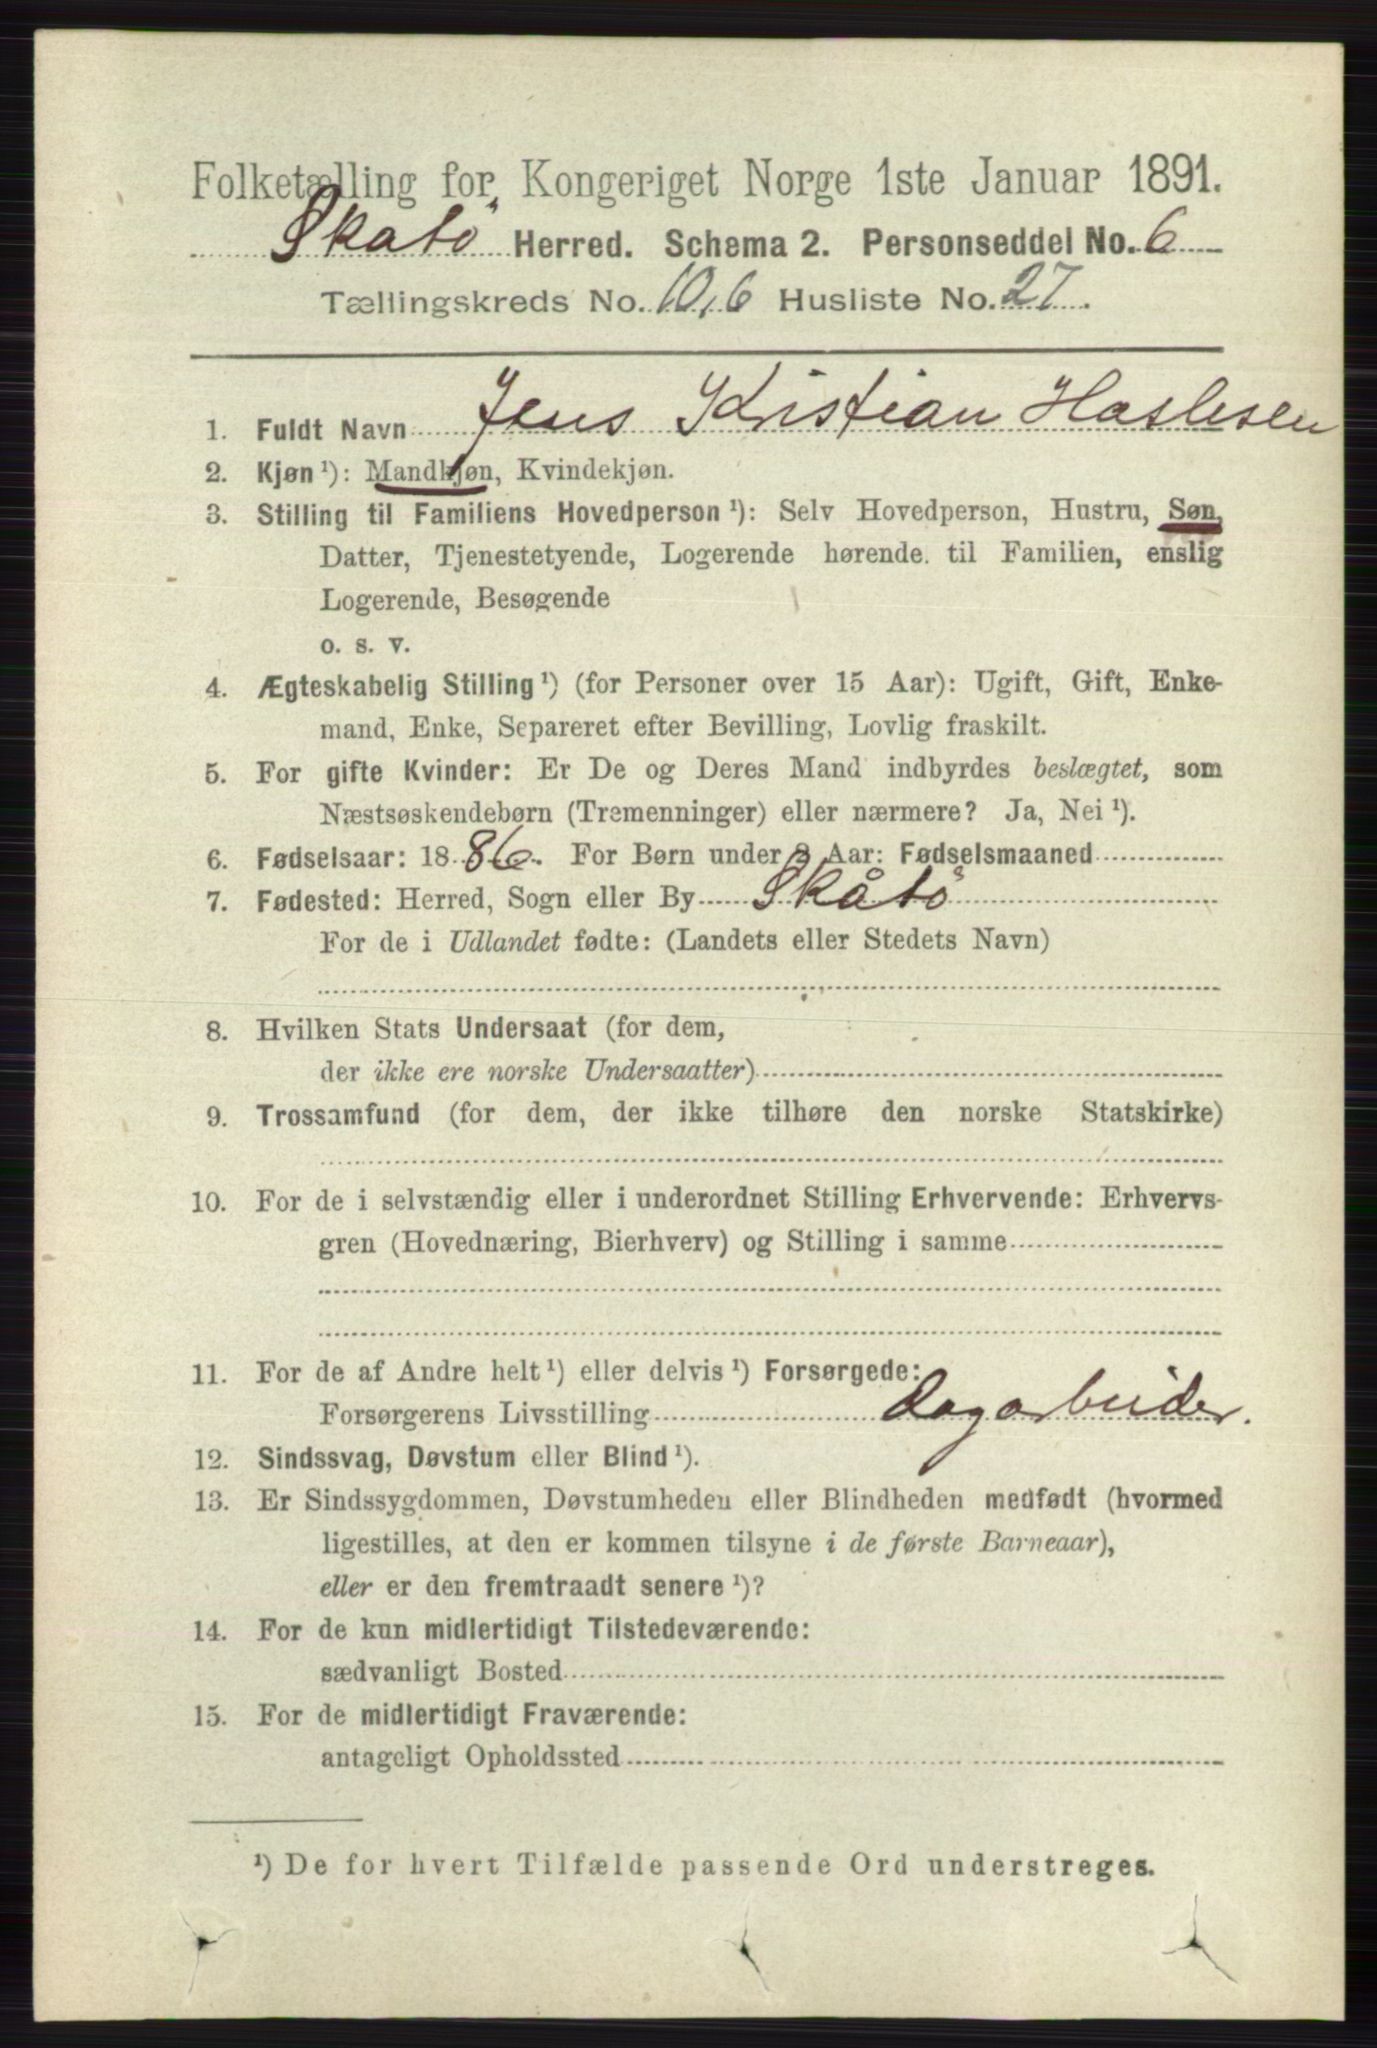 Folketælling for Kongeriget Norge 1ste Januar 1891.
Skatö Herred. Schema 2. Personseddel No. 6
Tællingskreds No. 10,6 Husliste No. 27.
1. Fuldt Navn Jens Kristian
2. Kjøn¹): Mandkjøn, Kvindekjøn.
3. Stilling til Familiens Hovedperson¹): Selv Hovedperson, Hustru, Søn,
Datter, Tjenestetyende, Logerende hørende til Familien, enslig
Logerende, Besøgende
o. s. v.
4. Ægteskabelig Stilling¹) (for Personer over 15 Aar): Ugift, Gift, Enke-
mand, Enke, Separeret efter Bevilling, Lovlig fraskilt.
5. For gifte Kvinder: Er De og Deres Mand indbyrdes beslægtet, som
Næstsøskendebørn (Tremenninger) eller nærmere? Ja, Nei¹).
6. Fødselsaar: 1886. For Børn under 2 Aar: Fødselsmaaned
7. Fødested: Herred, Sogn eller By Skåtö
For de i Udlandet fødte: (Landets eller Stedets Navn)
8. Hvilken Stats Undersaat (for dem,
der ikke ere norske Undersaatter)
9. Trossamfund (for dem, der ikke tilhøre den norske Statskirke)
10. For de i selvstændig eller i underordnet Stilling Erhvervende: Erhvervs-
gren (Hovednæring, Bierhverv) og Stilling i samme
11. For de af Andre helt¹) eller delvis¹) Forsørgede:
Forsørgerens Livsstilling Dagarbeider.
12. Sindssvag, Døvstum eller Blind¹).
13. Er Sindssygdommen, Døvstumheden eller Blindheden medfødt (hvormed
ligestilles, at den er kommen tilsyne i de første Barneaar),
eller er den fremtraadt senere¹)?
14. For de kun midlertidigt Tilstedeværende:
sædvanligt Bosted
15. For de midlertidigt Fraværende:
antageligt Opholdssted
¹) De for hvert Tilfælde passende Ord understreges.